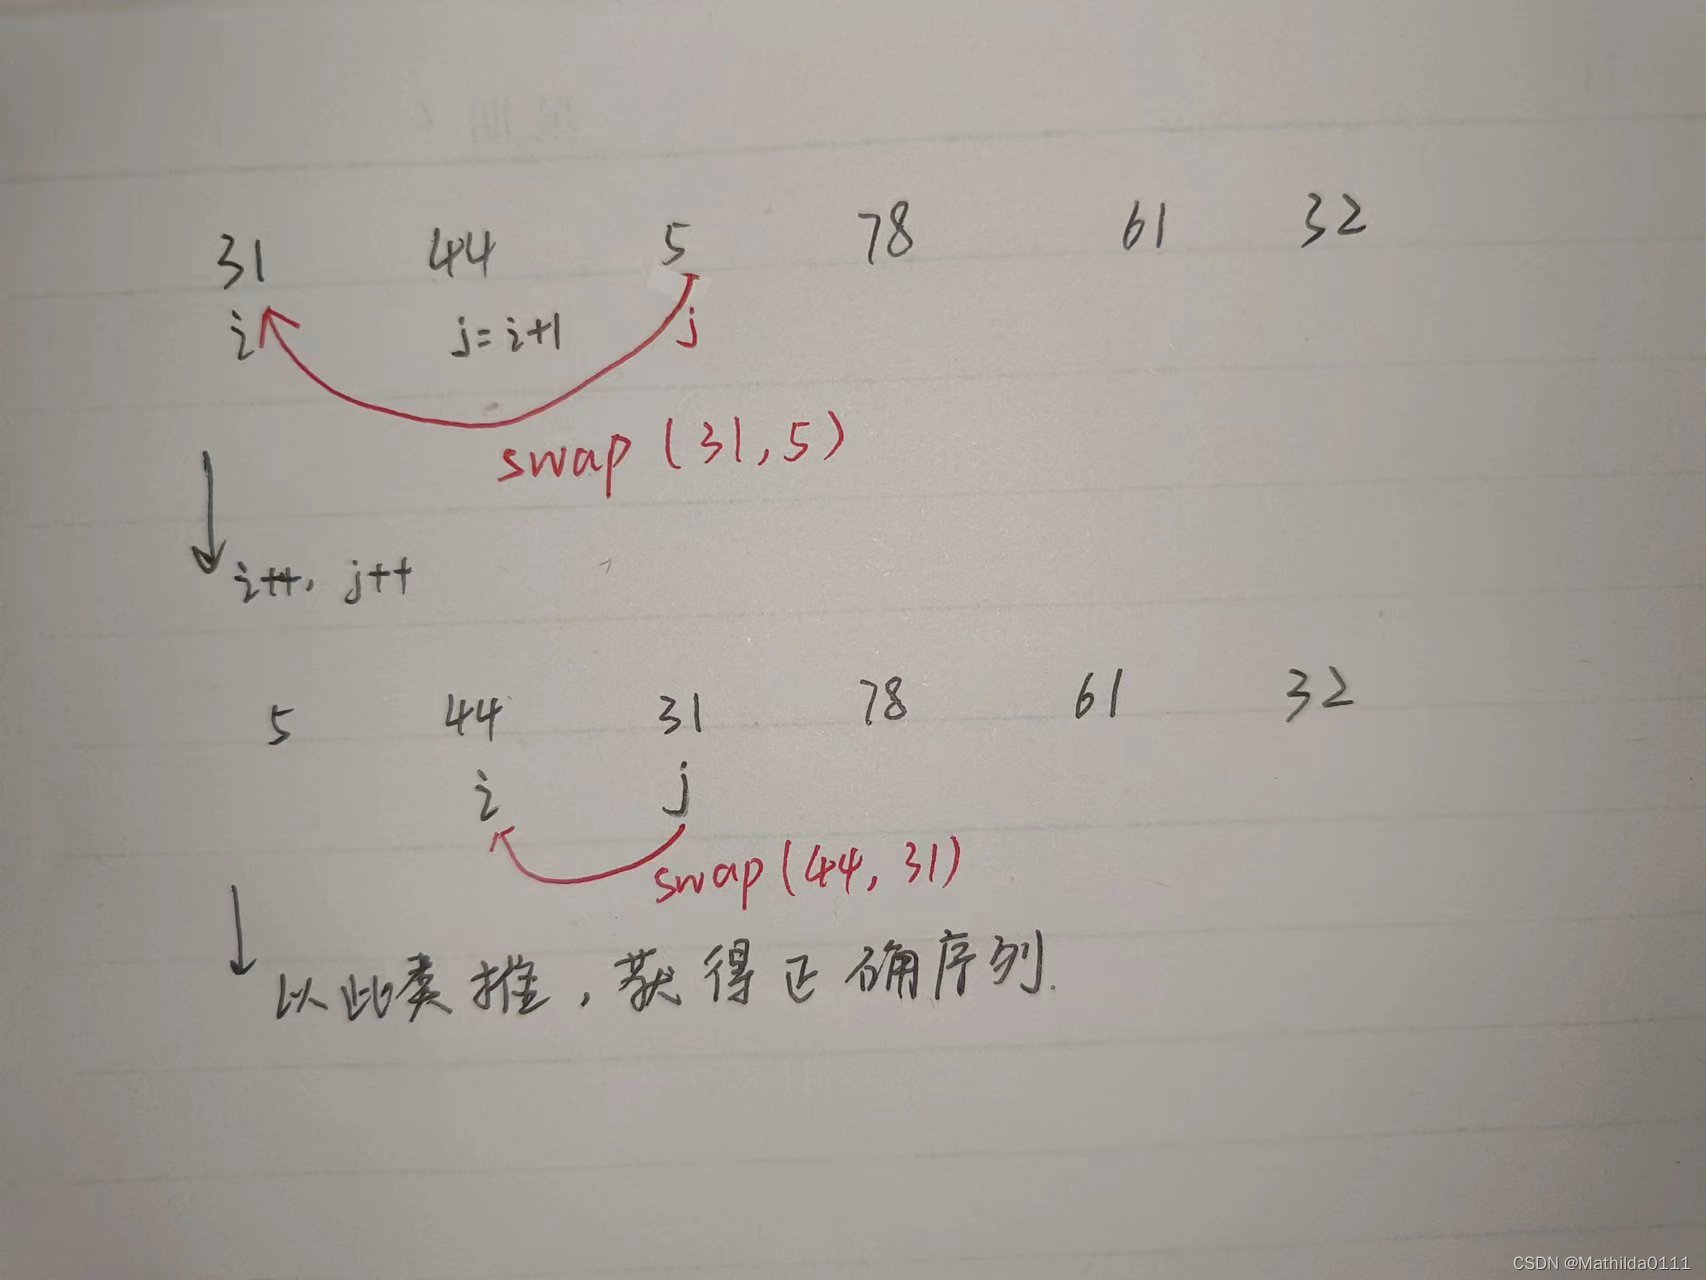 31 44 5 78 61 32
i j=i+1 j
swap (31, 5)
i++, j++
5 44 31 78 61 32
i j
swap (44, 31)
以此类推,获得正确序列.
CSDN @Mathilda0111